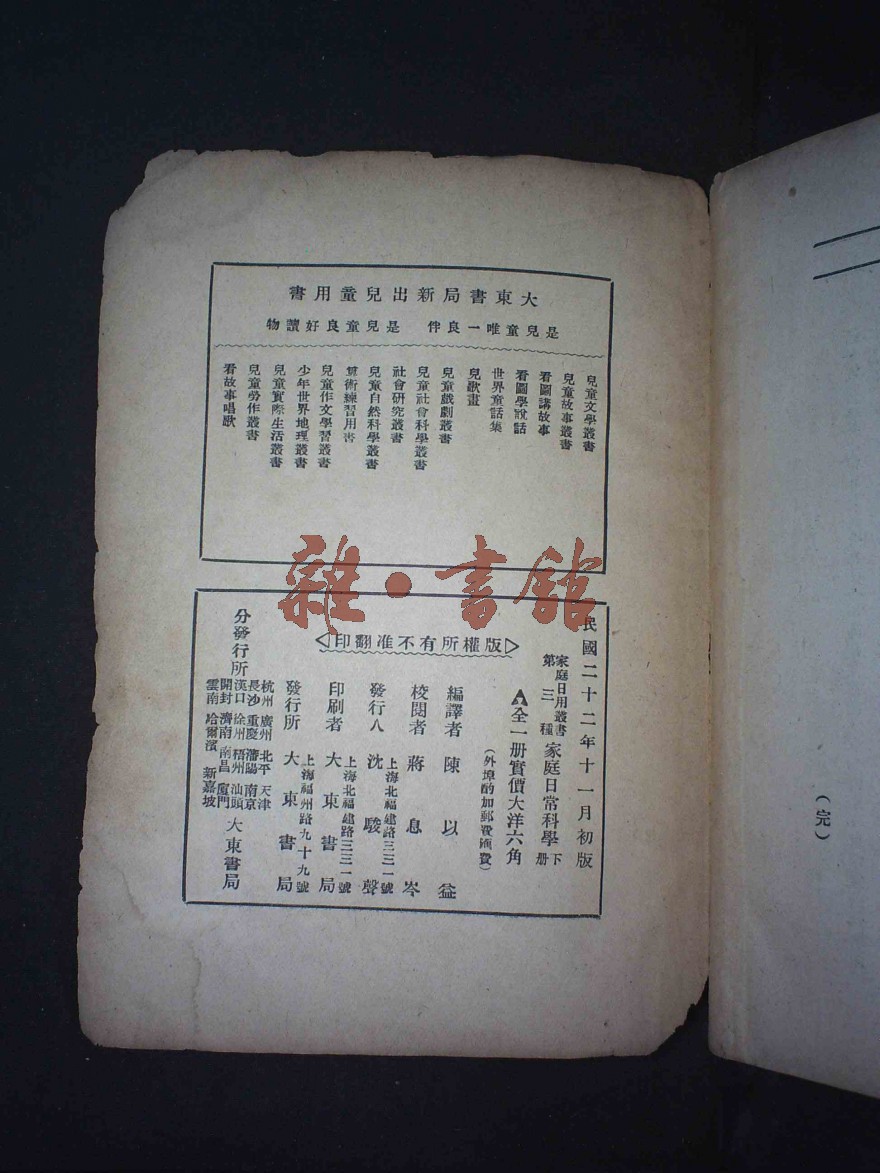 大東書局新出兒童用書
是兒童唯一良伴　是兒童良好讀物
兒童文學叢書
兒童故事叢書
看圖講故事
看圖學說話
世界童話集
兒歌畫
兒童戲劇叢書
兒童社會科學叢書
社會研究叢書
兒童自然科學叢書
算術練習用書
兒童作文學習叢書
少年世界地理叢書
兒童實際生活叢書
兒童勞作叢書
看故事唱歌
雜·書館
民國二十二年十一月初版
家庭日用叢書
第三種
家庭日常科學 下册
全一册實價大洋六角
(外埠酌加郵費匯費)
版權所有不准翻印
編譯者 陳以益
校閱者 蔣息岑
上海北福建路三三一號
發行人 沈駿聲
上海北福建路三三一號
印刷者 大東書局
上海福州路九十九號
發行所 大東書局
分發行所
杭州 廣州 北平 天津
長沙 重慶 瀋陽 南京
漢口 徐州 梧州 汕頭
開封 濟南 南昌 廈門
雲南 哈爾濱 新嘉坡
大東書局
(完)